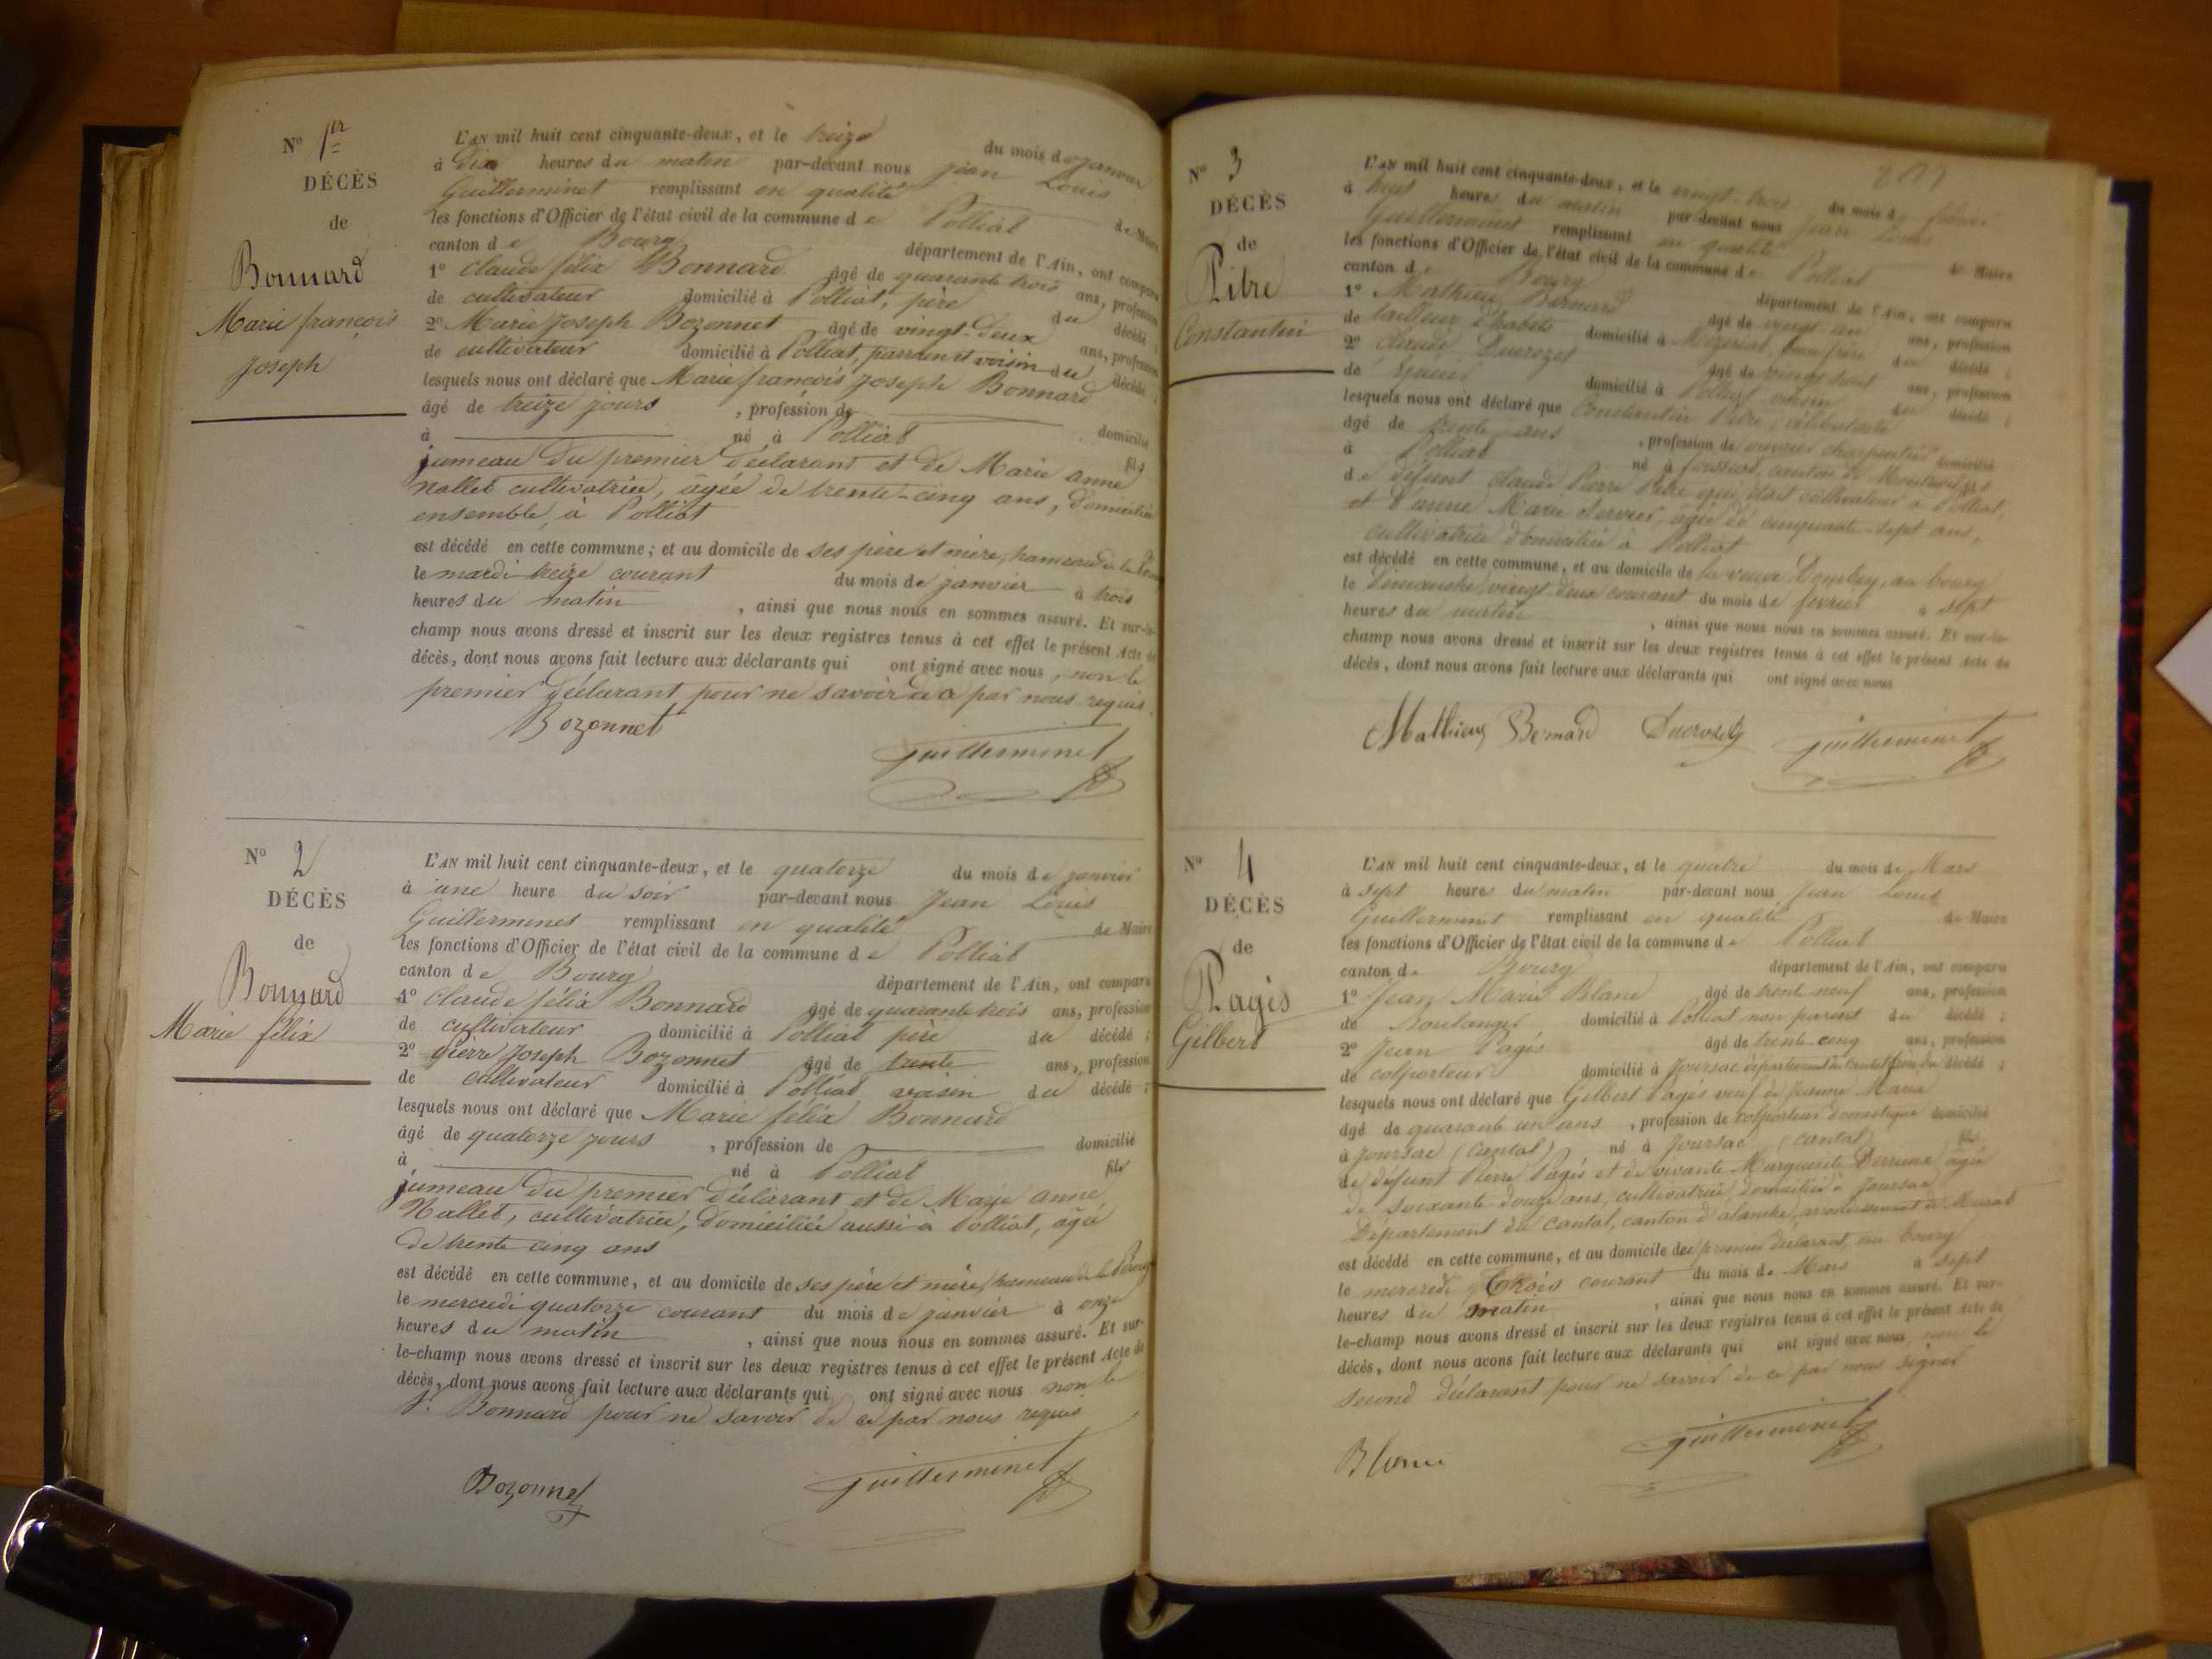 N° 1er
DÉCÈS
de
Bonnard
Marie françois
Joseph
L'AN mil huit cent cinquante-deux, et le treize du mois de janvier
à Dix heures du matin par-devant nous jean Louis
Guillerminet remplissant en qualité de Maire
les fonctions d'Officier de l'état civil de la commune de Polliat
canton de Bourg département de l'Ain, ont comparu
1° Claude félix Bonnard âgé de quarante trois ans, profession
de cultivateur domicilié à Polliat, père du décédé ;
2° Marie Joseph Bozonnet âgé de vingt-Deux ans, profession
de cultivateur domicilié à Polliat, parrain et voisin du décédé ;
lesquels nous ont déclaré que Marie françois Joseph Bonnard
âgé de treize jours , profession de domicilié
à né à Polliat fils
jumeau Du premier Déclarant et de Marie anne
Nallet cultivatrice, âgée de trente-cinq ans, Domiciliés
ensemble, à Polliat
est décédé en cette commune ; et au domicile de ses père et mère, hameau de la
le mardi treize courant du mois de janvier à trois
heures du matin , ainsi que nous nous en sommes assuré. Et sur-le-
champ nous avons dressé et inscrit sur les deux registres tenus à cet effet le présent Acte de
décès, dont nous avons fait lecture aux déclarants qui ont signé avec nous, non le
premier Déclarant pour ne savoir de ce par nous requis.
Bozonnet
Guillerminet
N° 2
DÉCÈS
de
Bonnard
Marie félix
L'AN mil huit cent cinquante-deux, et le quatorze du mois de janvier
à une heure du soir par-devant nous Jean Louis
Guillerminet remplissant en qualité de Maire
les fonctions d'Officier de l'état civil de la commune de Polliat
canton de Bourg département de l'Ain, ont comparu
1° Claude félix Bonnard âgé de quarante trois ans, profession
de cultivateur domicilié à Polliat père du décédé ;
2° pierre Joseph Bozonnet âgé de trente ans, profession
de cultivateur domicilié à Polliat voisin du décédé ;
lesquels nous ont déclaré que Marie félix Bonnard
âgé de quatorze jours , profession de domicilié
à né à Polliat fils
jumeau Du premier Déclarant et de Marie anne
Nallet, cultivatrice, Domiciliée aussi à Polliat, âgée
De trente cinq ans
est décédé en cette commune, et au domicile de ses père et mère, hameau de la
le mercredi quatorze courant du mois de janvier à onze
heures du matin , ainsi que nous nous en sommes assuré. Et sur-
le-champ nous avons dressé et inscrit sur les deux registres tenus à cet effet le présent Acte de
décès, dont nous avons fait lecture aux déclarants qui ont signé avec nous non le
Sr. Bonnard pour ne savoir de ce par nous requis
Bozonnet
Guillerminet
N° 3
DÉCÈS
de
Pitre
Constantin
L'AN mil huit cent cinquante-deux, et le vingt trois du mois de février
à sept heures du matin par-devant nous jean Louis
Guillerminet remplissant en qualité de Maire
les fonctions d'Officier de l'état civil de la commune de Polliat
canton de Bourg département de l'Ain, ont comparu
1° Mathieu Bernard âgé de vingt un ans, profession
de tailleur d'habits domicilié à Mézériat, beau frère du décédé ;
2° Claude Ducrozet âgé de vingt huit ans, profession
de domicilié à Polliat voisin du décédé ;
lesquels nous ont déclaré que Constantin Pitre, célibataire
âgé de trente ans , profession de ouvrier charpentier domicilié
à Polliat né à foissiat, canton de Montrevel fils
de Défunt Claude Pierre Pitre qui était cultivateur à Polliat,
et D'anne Marie âgée de cinquante-sept ans,
cultivatrice domiciliée à Polliat
est décédé en cette commune, et au domicile de la veuve au bourg
le Dimanche vingt Deux courant du mois de février à sept
heures du matin , ainsi que nous nous en sommes assuré. Et sur-le-
champ nous avons dressé et inscrit sur les deux registres tenus à cet effet le présent Acte de
décès, dont nous avons fait lecture aux déclarants qui ont signé avec nous
Mathieu Bernard Ducrozet Guillerminet
N° 4
DÉCÈS
de
Pagès
Gilbert
L'AN mil huit cent cinquante-deux, et le quatre du mois de Mars
à sept heures du matin par-devant nous Jean Louis
Guillerminet remplissant en qualité de Maire
les fonctions d'Officier de l'état civil de la commune de Polliat
canton de Bourg département de l'Ain, ont comparu
1° Jean Marie Blanc âgé de trente neuf ans, profession
de Boulanger domicilié à Polliat non parent du décédé ;
2° Jean Pagès âgé de trente-cinq ans, profession
de colporteur domicilié à Joursac département du Cantal frère du décédé ;
lesquels nous ont déclaré que Gilbert Pagès veuf de jeanne Maria
âgé de quarante un ans , profession de colporteur domestique domicilié
à Joursac (Cantal) né à Joursac (Cantal) fils
de défunt Pierre Pagès et de vivante Marguerite âgée
de soixante-douze ans, cultivatrice, domiciliée à Joursac
Département du Cantal, canton d'alanche, arrondissement de Murat
est décédé en cette commune, et au domicile du premier déclarant, au bourg
le mercredi Trois courant du mois de Mars à sept
heures du matin , ainsi que nous nous en sommes assuré. Et sur-
le-champ nous avons dressé et inscrit sur les deux registres tenus à cet effet le présent Acte de
décès, dont nous avons fait lecture aux déclarants qui ont signé avec nous, non le
second déclarant pour ne savoir de ce par nous signer
Blanc
Guillerminet